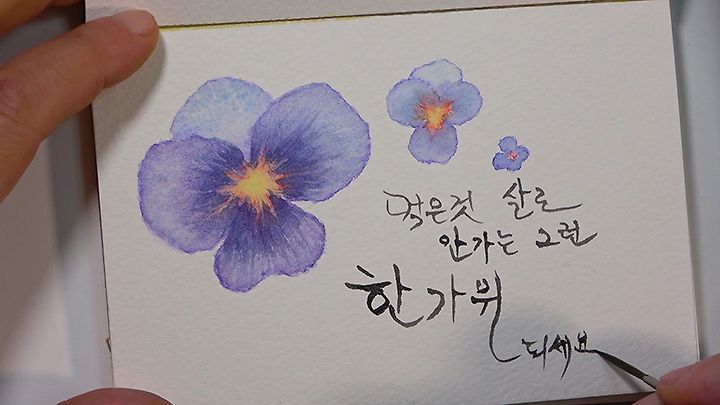 먹은것 살로
안가는 그런
한가위
되세요